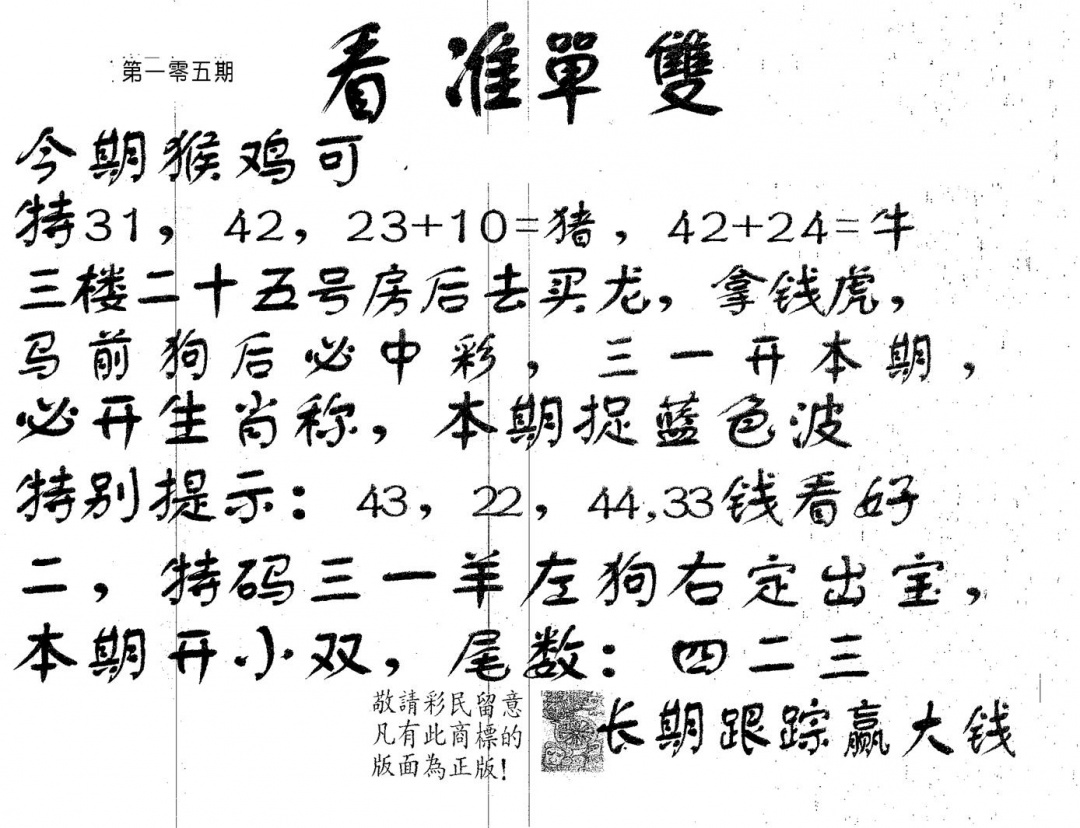 第一零五期
看准單雙
今期猴鸡可
特31，42，23+10=猪，42+24=牛
三楼二十五号房后去买龙，拿钱虎，
马前狗后必中彩，三一开本期，
必开生肖称，本期捉蓝色波
特别提示：43，22，44,33钱看好
二，特码三一羊左狗右定出宝，
本期开小双，尾数：四二三
敬請彩民留意
凡有此商標的
版面為正版！
长期跟踪赢大钱